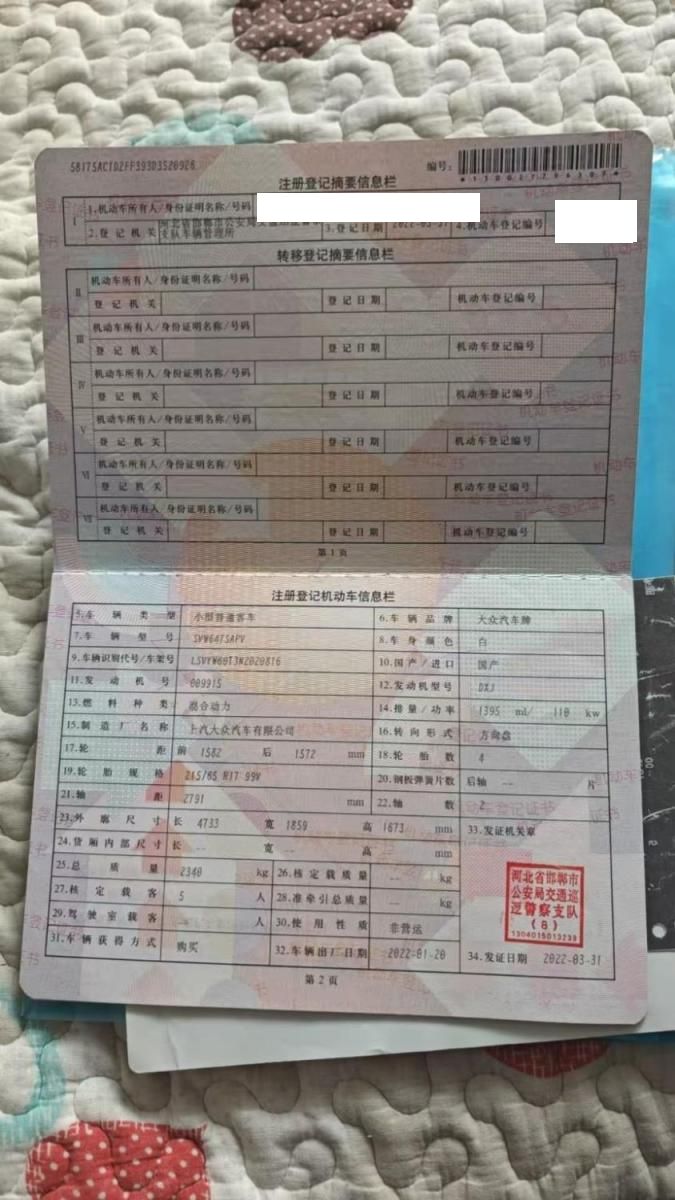 58175AC1D2FF393D3520926
编号：
*130021296307*
注册登记摘要信息栏
I 1.机动车所有人/身份证明名称/号码
2.登记机关 河北省邯郸市公安局交通巡警支队车辆管理所 3.登记日期 2022-03-31 4.机动车登记编号
转移登记摘要信息栏
II 机动车所有人/身份证明名称/号码
登记机关 登记日期 机动车登记编号
III 机动车所有人/身份证明名称/号码
登记机关 登记日期 机动车登记编号
IV 机动车所有人/身份证明名称/号码
登记机关 登记日期 机动车登记编号
V 机动车所有人/身份证明名称/号码
登记机关 登记日期 机动车登记编号
VI 机动车所有人/身份证明名称/号码
登记机关 登记日期 机动车登记编号
VII 机动车所有人/身份证明名称/号码
登记机关 登记日期 机动车登记编号
第1页
注册登记机动车信息栏
5.车辆类型 小型普通客车 6.车辆品牌 大众汽车牌
7.车辆型号 SVW6475APV 8.车身颜色 白
9.车辆识别代号/车架号 LSVYW60T3N2020816 10.国产/进口 国产
11.发动机号 009915 12.发动机型号 DXJ
13.燃料种类 混合动力 14.排量/功率 1395 ml/ 110 kw
15.制造厂名称 上汽大众汽车有限公司 16.转向形式 方向盘
17.轮距 前 1582 后 1572 mm 18.轮胎数 4
19.轮胎规格 215/65 R17 99V 20.钢板弹簧片数 后轴 -- 片
21.轴距 2791 mm 22.轴数 2
23.外廓尺寸 长 4733 宽 1859 高 1673 mm 33.发证机关章
24.货厢内部尺寸 长 -- 宽 -- 高 -- mm
25.总质量 2340 kg 26.核定载质量 -- kg
27.核定载客 5 人 28.准牵引总质量 -- kg
29.驾驶室载客 -- 人 30.使用性质 非营运
31.车辆获得方式 购买 32.车辆出厂日期 2022-01-20 34.发证日期 2022-03-31
河北省邯郸市
公安局交通巡
逻警察支队
(8)
1304015013239
第2页